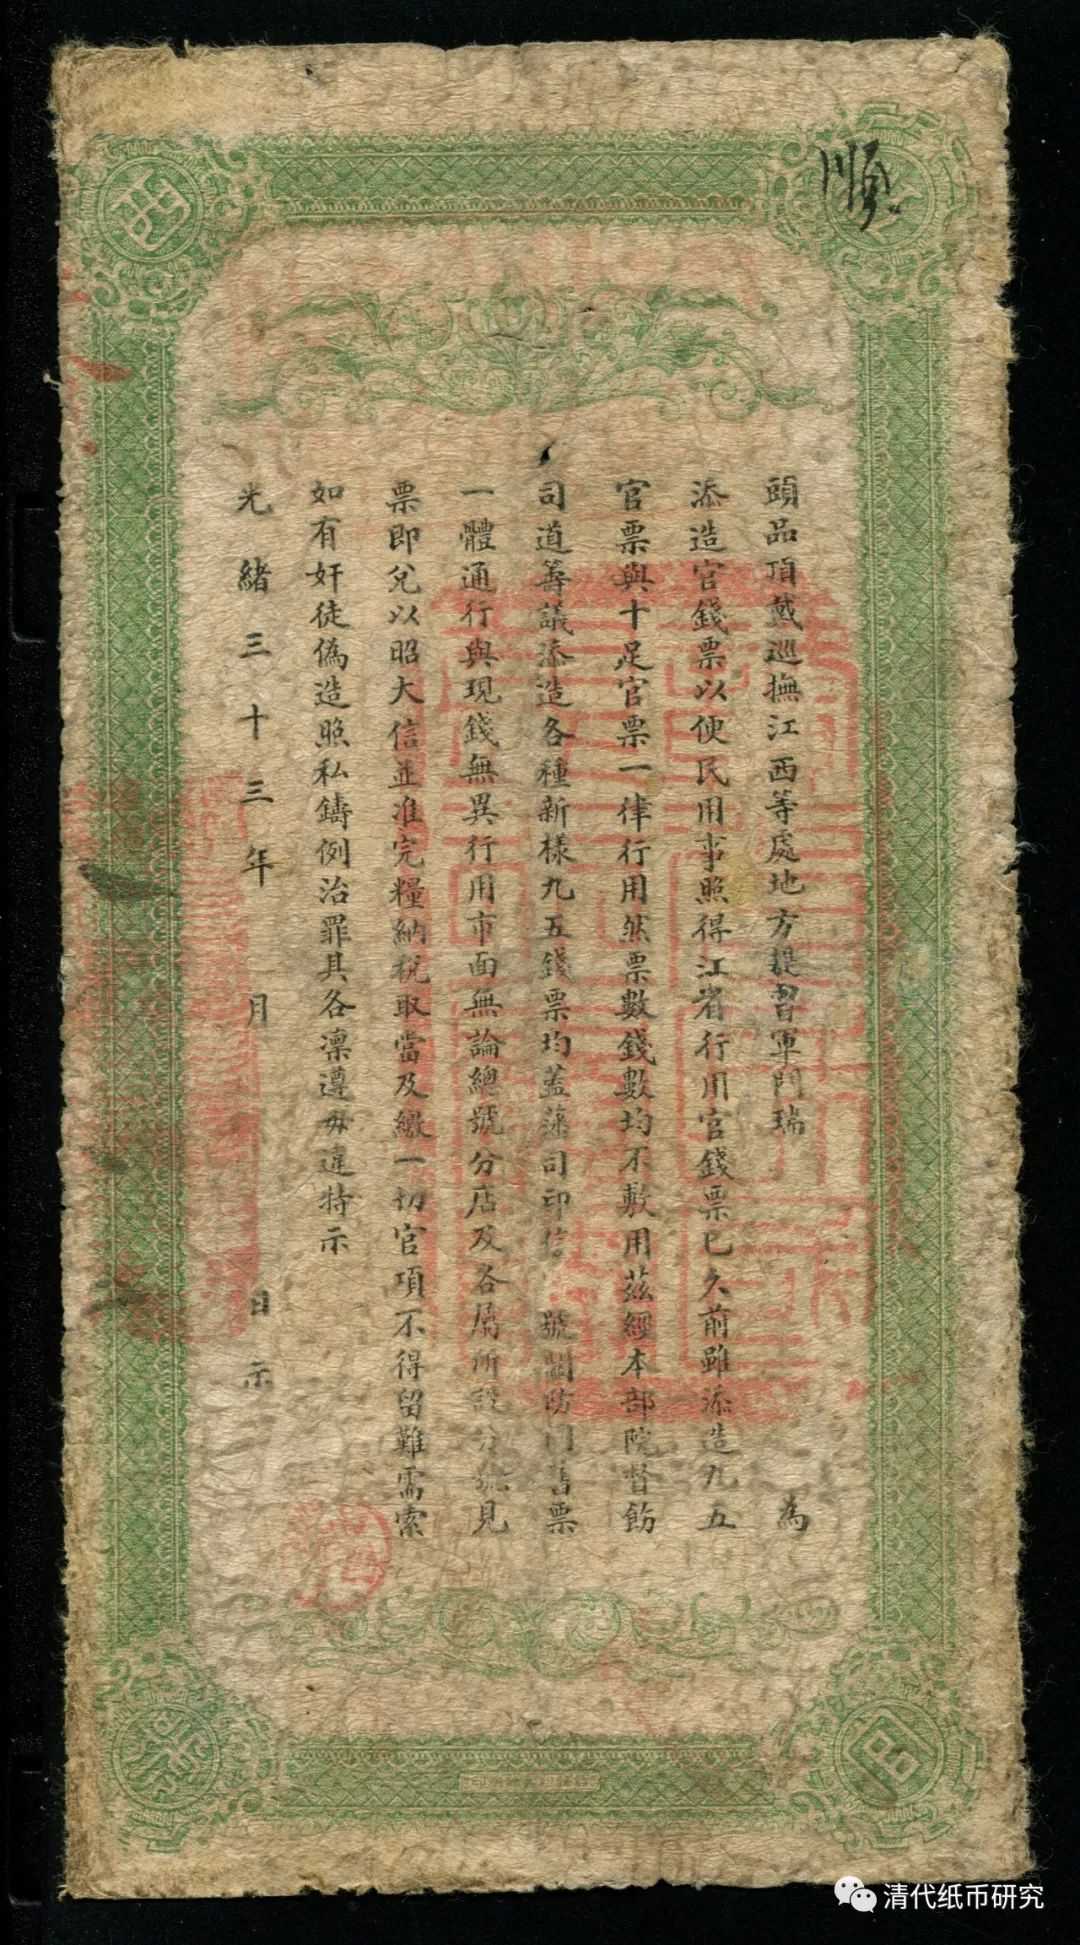 順
西
官
票
頭品頂戴巡撫江西等處地方提督軍門瑞 為
添造官錢票以便民用事照得江省行用官錢票已久前雖添造九五
官票與十足官票一律行用然票數錢數均不敷用茲經本部院督飭
司道籌議添造各種新樣九五錢票均蓋藩司印信 號關防同舊票
一體通行與現錢無異行用市面無論總號分店及各屬所設分號見
票即兌以昭大信並准完糧納稅取當及繳一切官項不得留難需索
如有奸徒偽造照私鑄例治罪其各凛遵毋違特示
光緒三十三年 月 日示
清代纸币研究